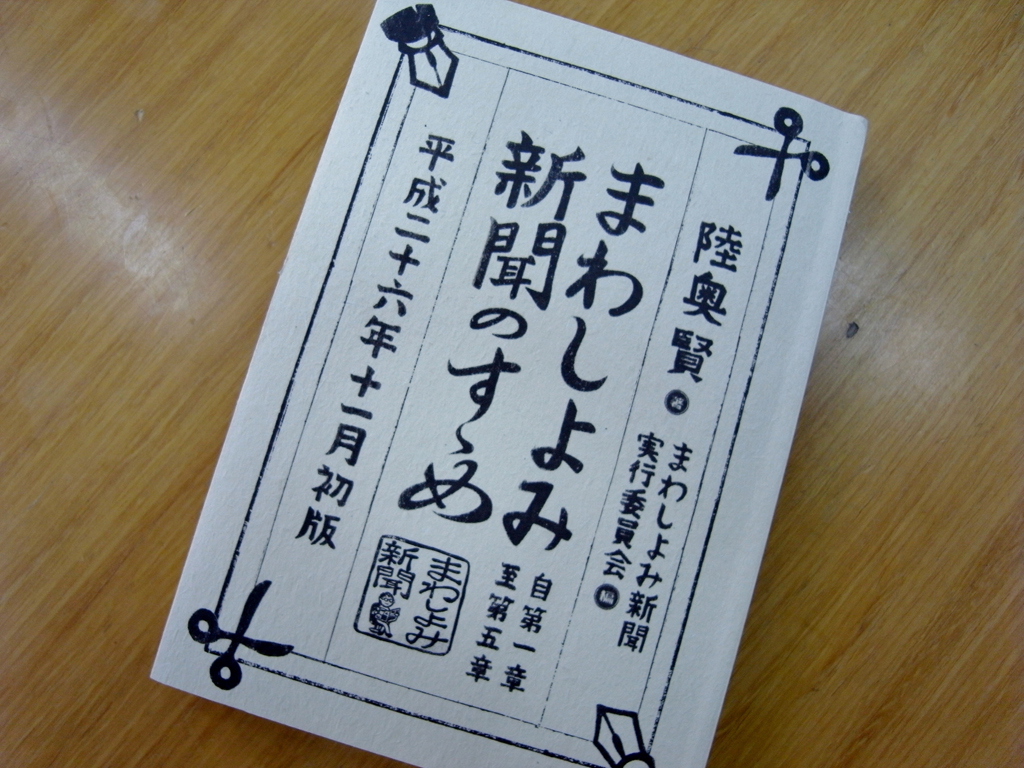 陸奥賢 著 まわしよみ新聞
実行委員会 編
まわしよみ
新聞のすゝめ
自第一章
至第五章
まわしよみ
新聞
平成二十六年十一月初版